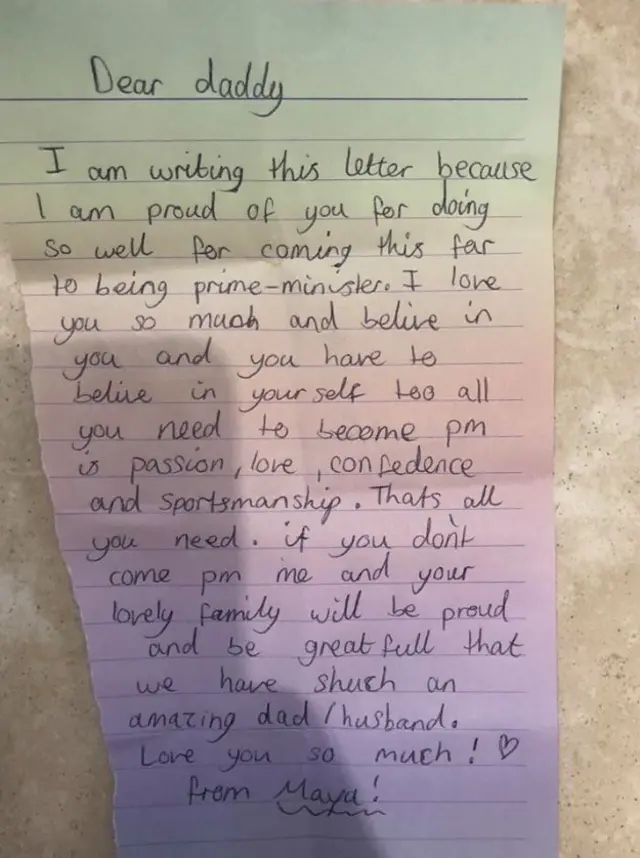 Dear daddy
I am writing this letter because
I am proud of you for doing
so well for coming this far
to being prime-minister. I love
you so much and belive in
you and you have to
belive in your self too all
you need to become pm
is passion, love, confedence
and sportsmanship. Thats all
you need. if you don't
come pm me and your
lovely family will be proud
and be great full that
we have shuch an
amazing dad/husband.
Love you so much! ♡
from Maya!